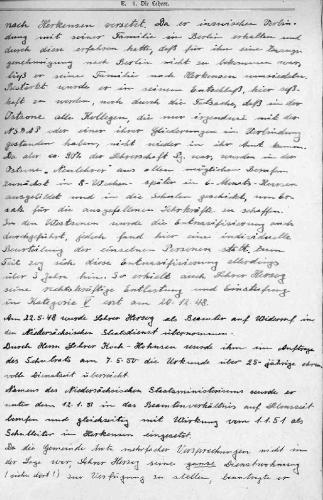 E. 1. Die Lehrer.
nach Herkensen versetzt. Da er inzwischen Verbin-
dung mit seiner Familie in Berlin erhalten und
durch diese erfahren hatte, daß für ihn eine Zuzugs-
genehmigung nach Berlin nicht zu bekommen war,
ließ er seine Familie nach Herkensen umsiedeln.
Bestärkt wurde er in seinem Entschluß, hier seß-
haft zu werden, noch durch die Tatsache, daß in der
Ostzone alle Kollegen, die nur irgendwie mit der
NSDAP oder einer ihrer Gliederungen in Verbindung
gestanden haben, nicht wieder in ihr Amt kamen.
Da aber ca. 90% der Lehrerschaft Pg. war, wurden in der
Ostzone "Neulehrer" aus allen möglichen Berufen
zunächst in 8-Wochen- später in 6-Monats-Kursen
ausgebildet und in die Schulen geschickt, um Er-
satz für die ausgefallenen Lehrkräfte zu schaffen.
In den Westzonen wurde die Entnazifizierung auch
durchgeführt, jedoch fand hier eine individuelle
Beurteilung der einzelnen Personen statt. Zum
Teil zog sich diese Entnazifizierung allerdings
über 3 Jahre hin. So erhielt auch Lehrer Herzog
seine rechtskräftige Entlastung und Einstufung
in Kategorie V erst am 20.12.48.
Am 22.5.48 wurde Lehrer Herzog als Beamter auf Widerruf in
den Niedersächsischen Staatsdienst übernommen.
Durch Herrn Lehrer Koch-Hohnsen wurde ihm im Auftrage
des Schulrats am 7.5.50 die Urkunde über 25-jährige ehren-
volle Dienstzeit überreicht.
Namens des Niedersächsischen Staatsministeriums wurde er
unter dem 12.1.51 in das Beamtenverhältnis auf Lebenszeit
berufen und gleichzeitig mit Wirkung vom 1.1.51 als
Schulleiter in Herkensen eingesetzt.
Da die Gemeinde trotz mehrfacher Versprechungen nicht in
der Lage war, Lehrer Herzog seine ganze Dienstwohnung
(siehe dort!) zur Verfügung zu stellen, beantragte er